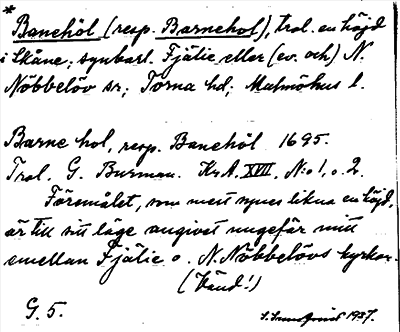 * Banehöl (resp. Barnehol), trol. en höjd
i Skåne, synbarl. Fjälie eller (ev. och) N.
Nöbbelöv sn; Torna hd; Malmöhus l.
Barne hol, resp. Banehöl 1695.
Trol. G. Burman. KrA. XVII, N:o 1, o. 2.
Föremålet, som mest synes likna en höjd,
är till sitt läge angivet ungefär mitt
emellan Fjälie o. N. Nöbbelövs kyrkor.
(Vänd!)
G. 5. 1937.